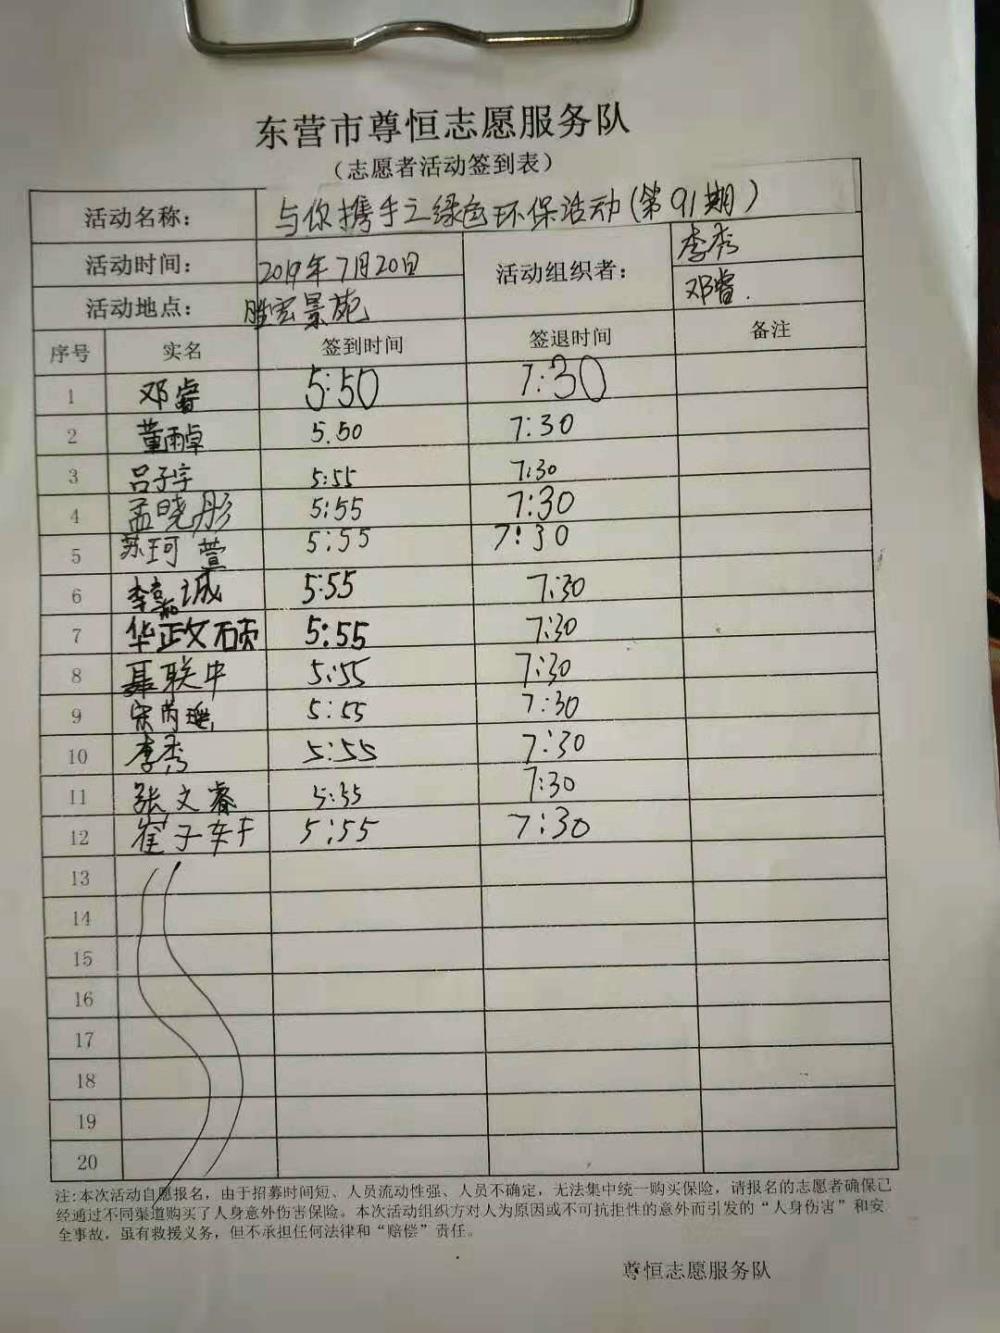 东营市尊恒志愿服务队
（志愿者活动签到表）
活动名称： 与你携手之绿色环保活动(第91期)
活动时间： 2019年7月20日 活动组织者： 李秀
邓睿.
活动地点： 胜宏景苑
序号 实名 签到时间 签退时间 备注
1 邓睿 5:50 7:30
2 董雨卓 5.50 7:30
3 吕子宇 5:55 7:30
4 孟晓彤 5:55 7:30
5 苏珂萱 5:55 7:30
6 李嘉诚 5:55 7:30
7 华政文硕 5:55 7:30
8 聂联中 5:55 7:30
9 宋芮 5:55 7:30
10 李秀 5:55 7:30
11 张文睿 5:55 7:30
12 崔子轩 5:55 7:30
13
14
15
16
17
18
19
20
注:本次活动自愿报名，由于招募时间短、人员流动性强、人员不确定，无法集中统一购买保险，请报名的志愿者确保已
经通过不同渠道购买了人身意外伤害保险。本次活动组织方对人为原因或不可抗拒性的意外而引发的“人身伤害”和安
全事故，虽有救援义务，但不承担任何法律和“赔偿”责任。
尊恒志愿服务队